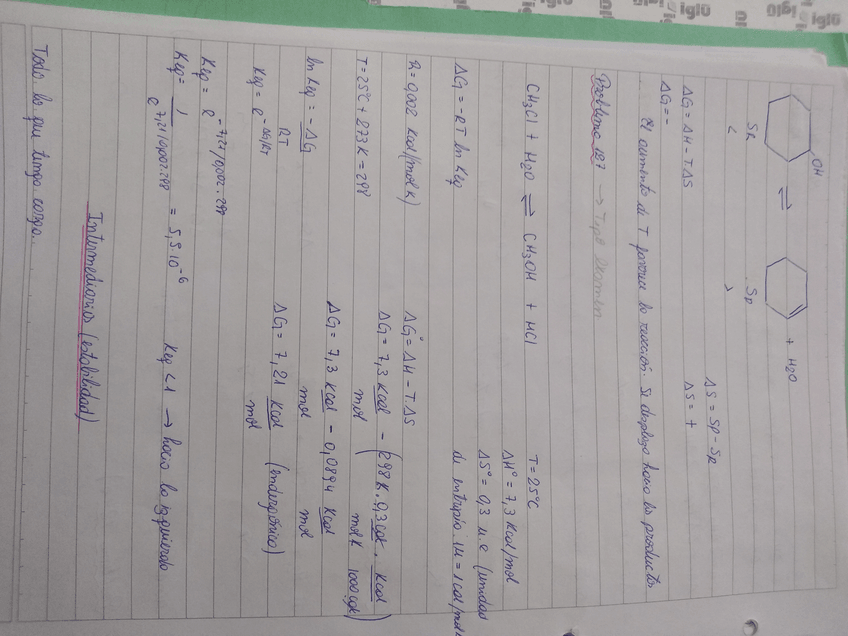 OH
⇌
+ H₂O
SR < > Sp
ΔS = Sp - SR
ΔG = ΔH - T.ΔS
ΔS = +
ΔG = -
El aumento de T favorece la reacción. Se desplaza hacia los productos
Problema 12? → Tipo Examen
CH₃Cl + H₂O ⇌ CH₃OH + HCl
T = 25°C
ΔH° = 7,3 Kcal/mol
ΔS° = 0,3 u.e (unidad
de entropia: 1u = 1 cal/molk
ΔG = -RT ln Keq
R = 0,002 Kcal/(molk)
ΔG° = ΔH - T.ΔS
ΔG = 7,3 Kcal/mol - (298K . 0,3 cal/molk . Kcal/1000 cal)
T = 25°C + 273K = 298
ΔG = 7,3 Kcal/mol - 0,0894 Kcal/mol
ln Keq = -ΔG/RT
ΔG = 7,21 Kcal/mol (endergónica)
Keq = e^-ΔG/RT
Keq = e^-7,21/0,002.298
Keq = 1/e^7,21/0,002.298 = 5,5.10⁻⁶
Keq < 1 → hacia la izquierda
Intermediarios (estabilidad)
Todo lo que tenga carga.